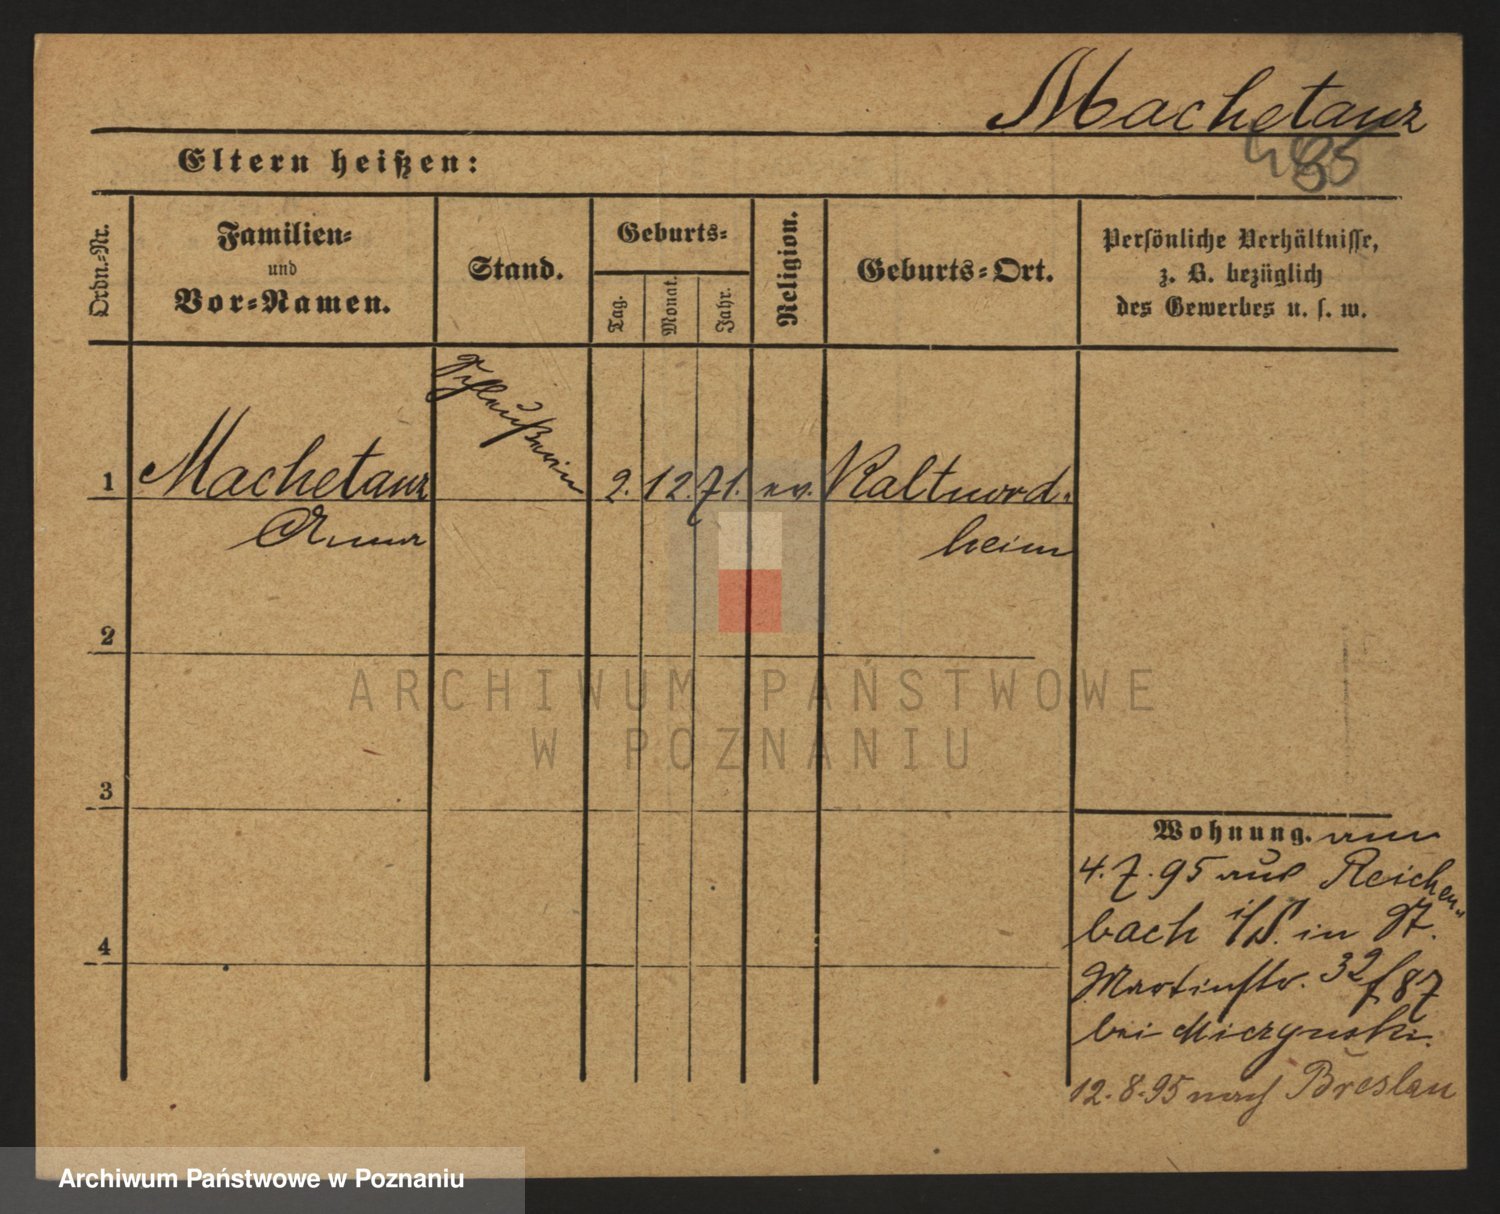 Machetanz
485
Eltern heißen:
Ordn.-Nr.
Familien-
und
Vor-Namen.
Stand.
Geburts-
Tag.
Monat.
Jahr.
Religion.
Geburts-Ort.
Persönliche Verhältnisse,
z. B. bezüglich
des Gewerbes u. s. w.
1 Machetanz 2. 12. 71. ev. Kaltnord-
Anna heim
2
3
4
Wohnung. am
4.7.95 aus Reichen-
bach i/S. in St.
Martinstr. 32/ 87
bei Miczynski.
12.8.95 nach Breslau
ARCHIWUM PAŃSTWOWE
W POZNANIU
Archiwum Państwowe w Poznaniu